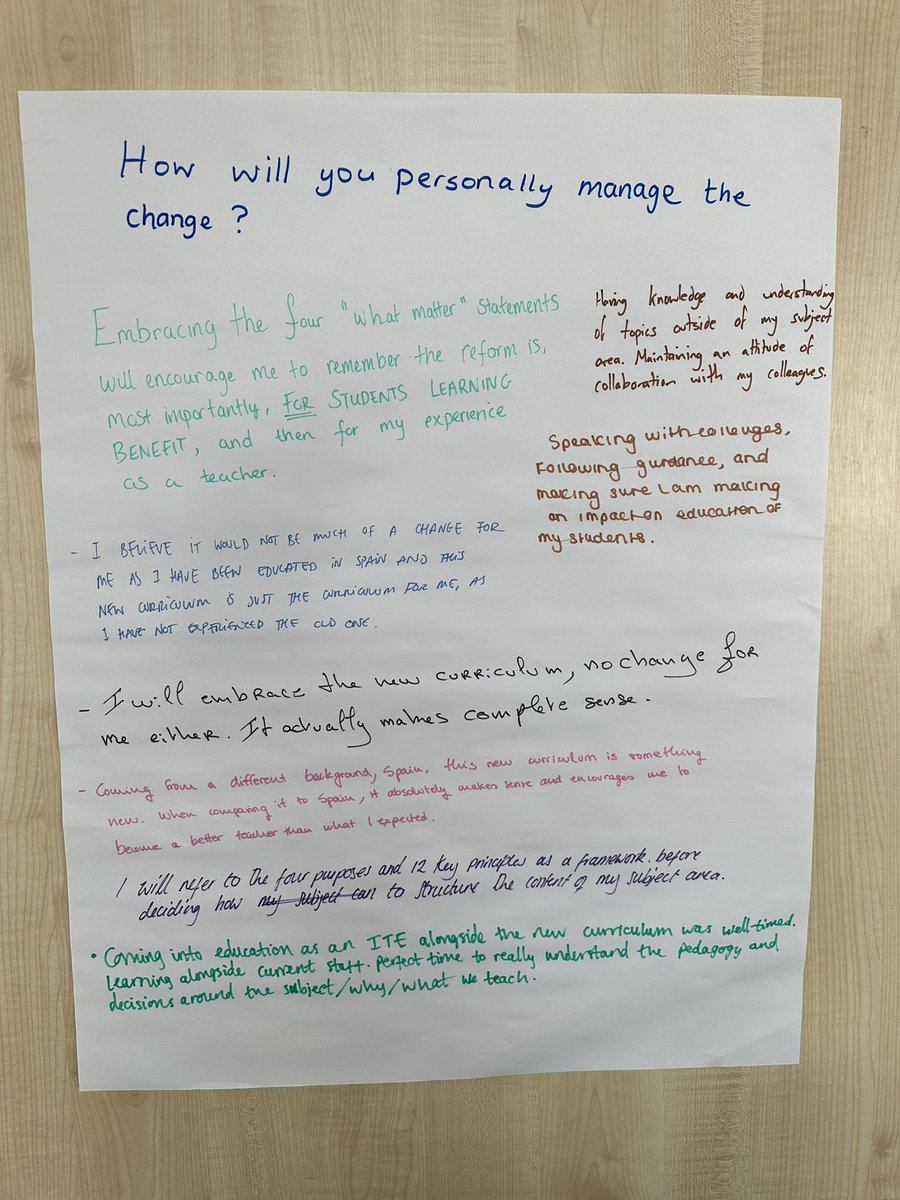 How will you personally manage the
change?
Embracing the four "what matter" statements
will encourage me to remember the reform is,
most importantly, FOR STUDENTS LEARNING
BENEFIT, and then for my experience
as a teacher.
Having knowledge and understanding
of topics outside of my subject
area. Maintaining an attitude of
collaboration with my colleagues.
Speaking with colleuges,
Following gurdance, and
making sure I am making
an impact on education of
my students.
- I BELIEVE IT WOULD NOT BE MUCH OF A CHANGE FOR
ME AS I HAVE BEEN EDUCATED IN SPAIN AND THIS
NEW CURRICULUM IS JUST THE CURRICULUM FOR ME, AS
I HAVE NOT EXPERIENCED THE OLD ONE.
- I will embrace the new curriculum, no change for
me either. It actually makes complete sense.
- Coming from a different background, Spain, this new curriculum is something
new. When comparing it to Spain, it absolutely makes sense and encourages me to
become a better teacher than what I expected.
I will refer to the four purposes and 12 key principles as a framework before
deciding how my subject can to structure the content of my subject area.
• Coming into education as an ITE alongside the new curriculum was well-timed.
Learning alongside current staff. Perfect time to really understand the pedagogy and
decisions around the subject/why/what we teach.